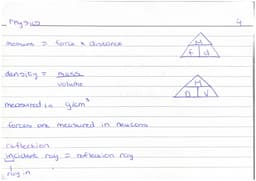 Physics
4
moment = force x distance
M
F d
density = mass
volume
M
D V
measured in g/cm³
forces are measured in newtons
reflection
incident ray = reflection ray
ray in